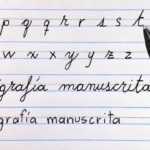 p q q r r s s t
w x x y y z z
grafía manuscrita
grafía manuscrita